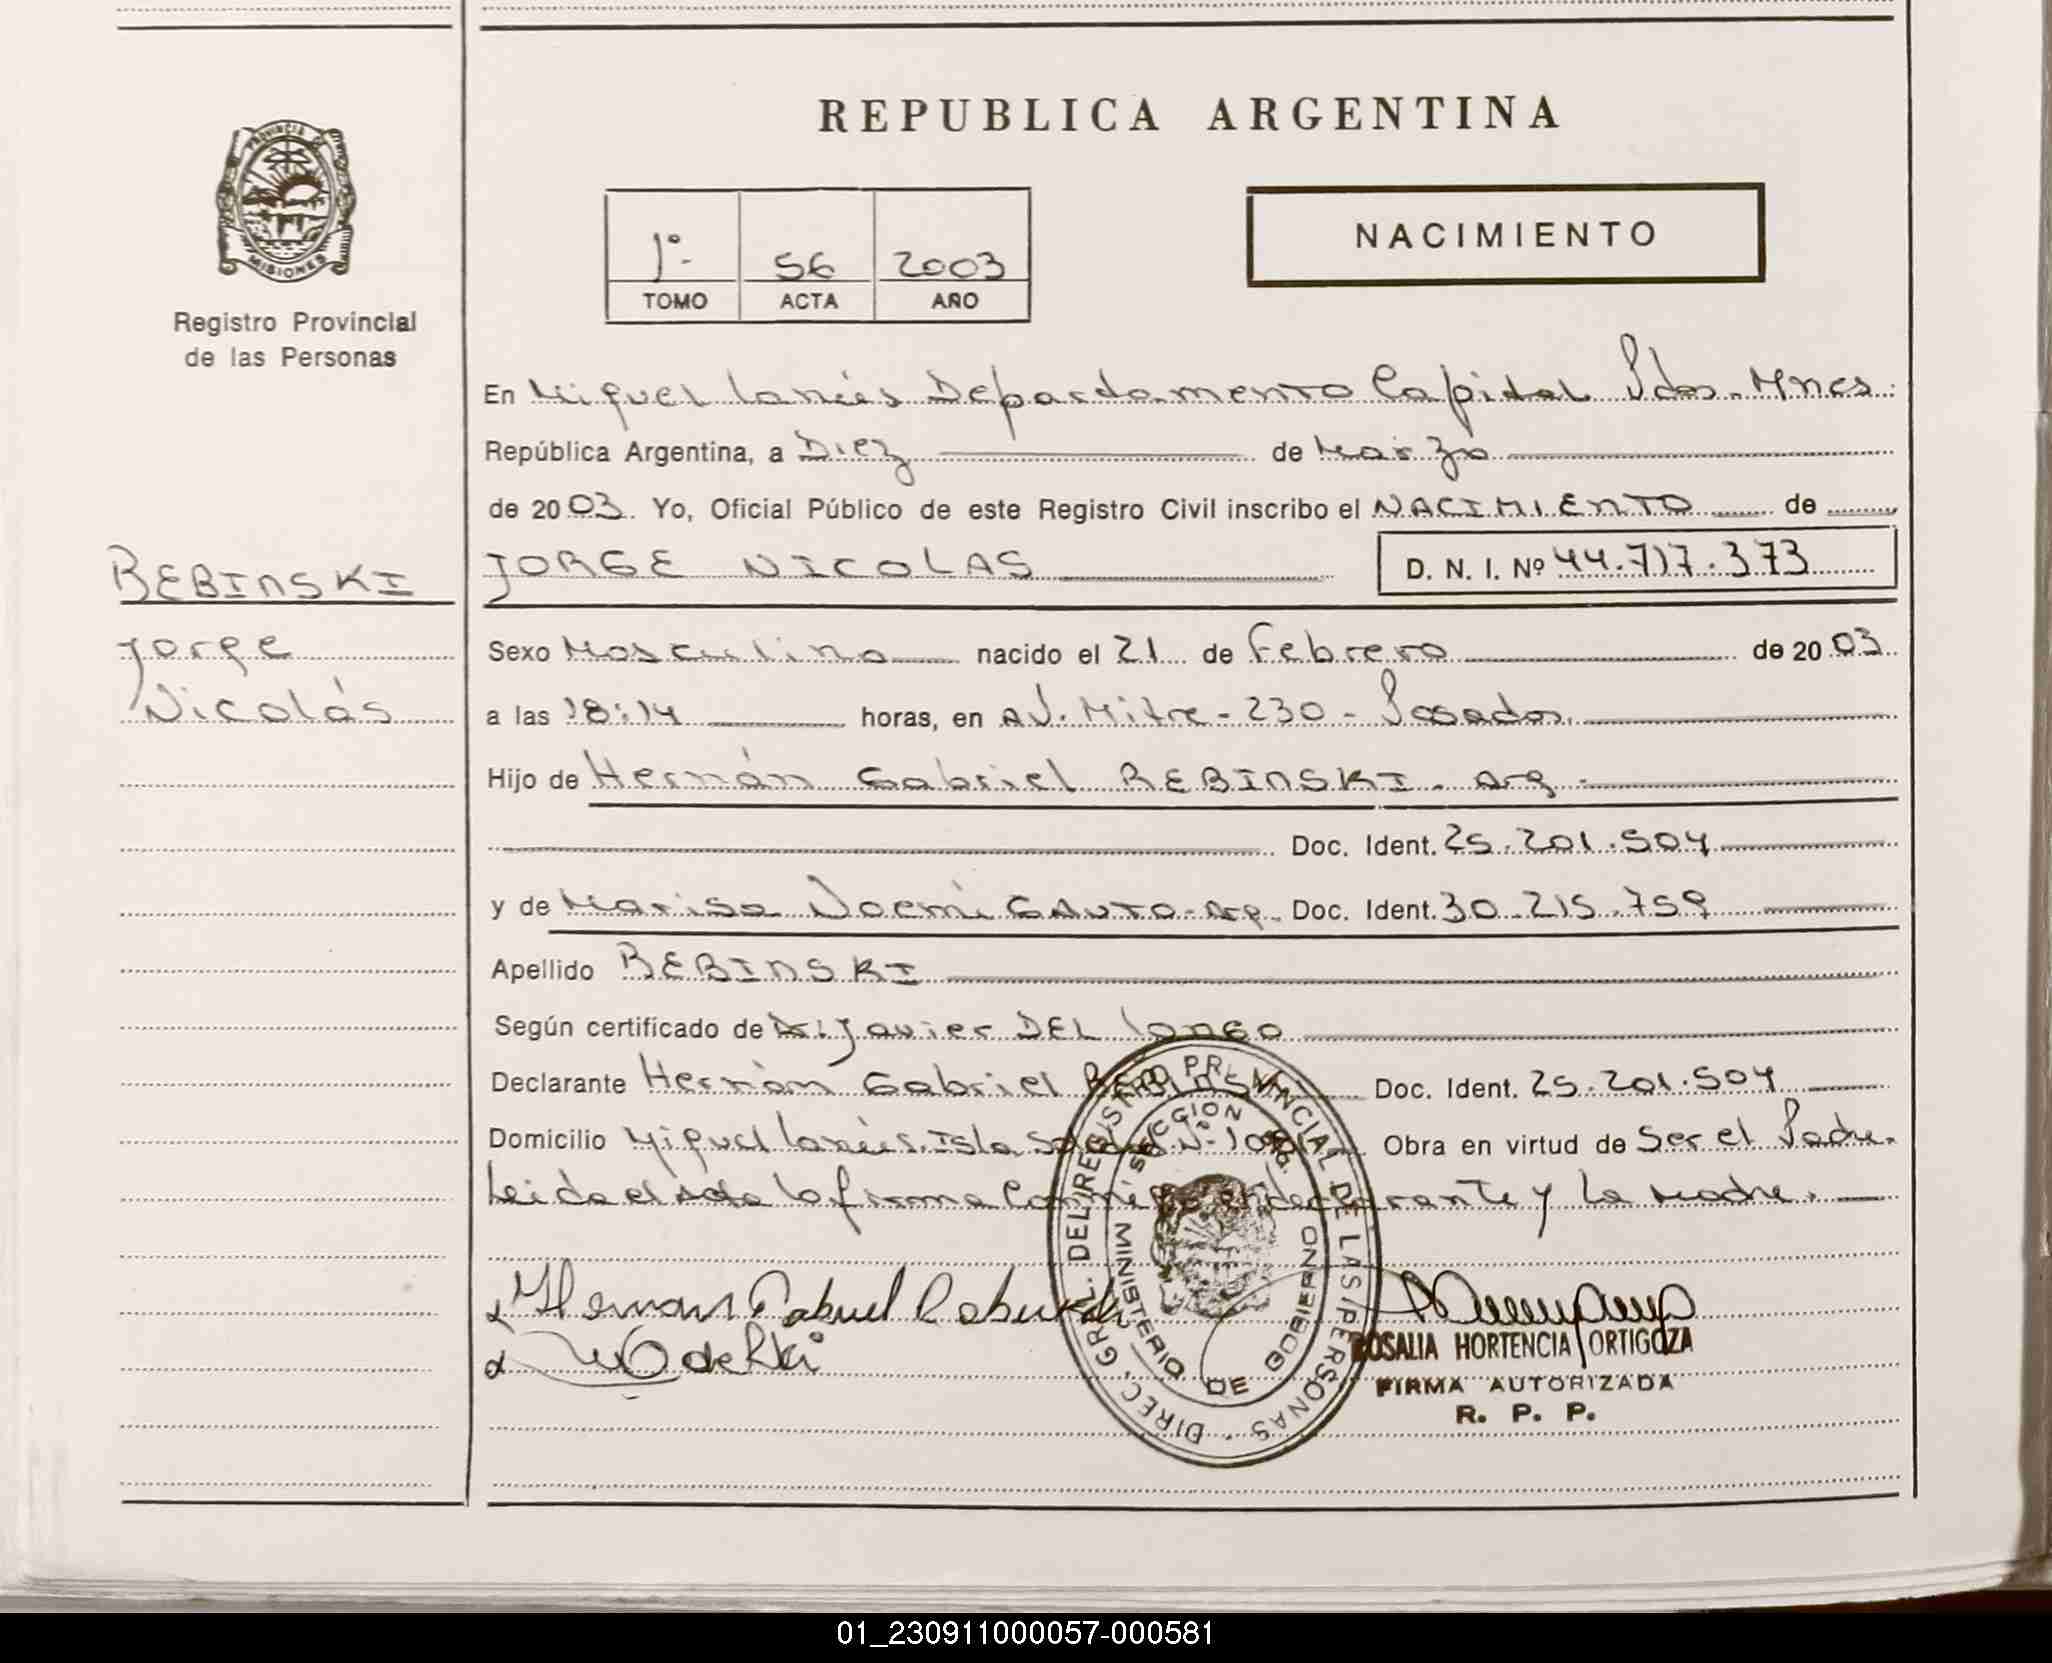 REPUBLICA ARGENTINA
PROVINCIA
MISIONES
Registro Provincial
de las Personas
NACIMIENTO
1º 56 2003
TOMO ACTA AÑO
En Miguel Lanús Departamento Capital Pdas. Mnes.
República Argentina, a Diez de Marzo
de 2003. Yo, Oficial Público de este Registro Civil inscribo el NACIMIENTO de
REBINSKI
Jorge
Nicolás
JORGE NICOLAS D. N. I. Nº 44.717.373
Sexo Masculino nacido el 21 de Febrero de 2003
a las 18:14 horas, en AV. Mitre - 230 - Posadas.
Hijo de Hernán Gabriel REBINSKI. Arg.
Doc. Ident. 25.201.504
y de Marisa Noemí GAUTO - Arg. Doc. Ident. 30.215.759
Apellido REBINSKI
Según certificado de Dr. Javier DEL LONGO
Declarante Hernán Gabriel REBINSKI Doc. Ident. 25.201.504
Domicilio Miguel Lanús. Isla Nº Obra en virtud de Ser el Padre.
Leida el Acta la firma Conmigo el declarante y La Madre.
DIREC. GRAL. DEL REGISTRO PROVINCIAL DE LAS PERSONAS
SECCION
MINISTERIO DE GOBIERNO
Hernan Gabriel Rebinski
ROSALIA HORTENCIA ORTIGOZA
FIRMA AUTORIZADA
R. P. P.
01_230911000057-000581